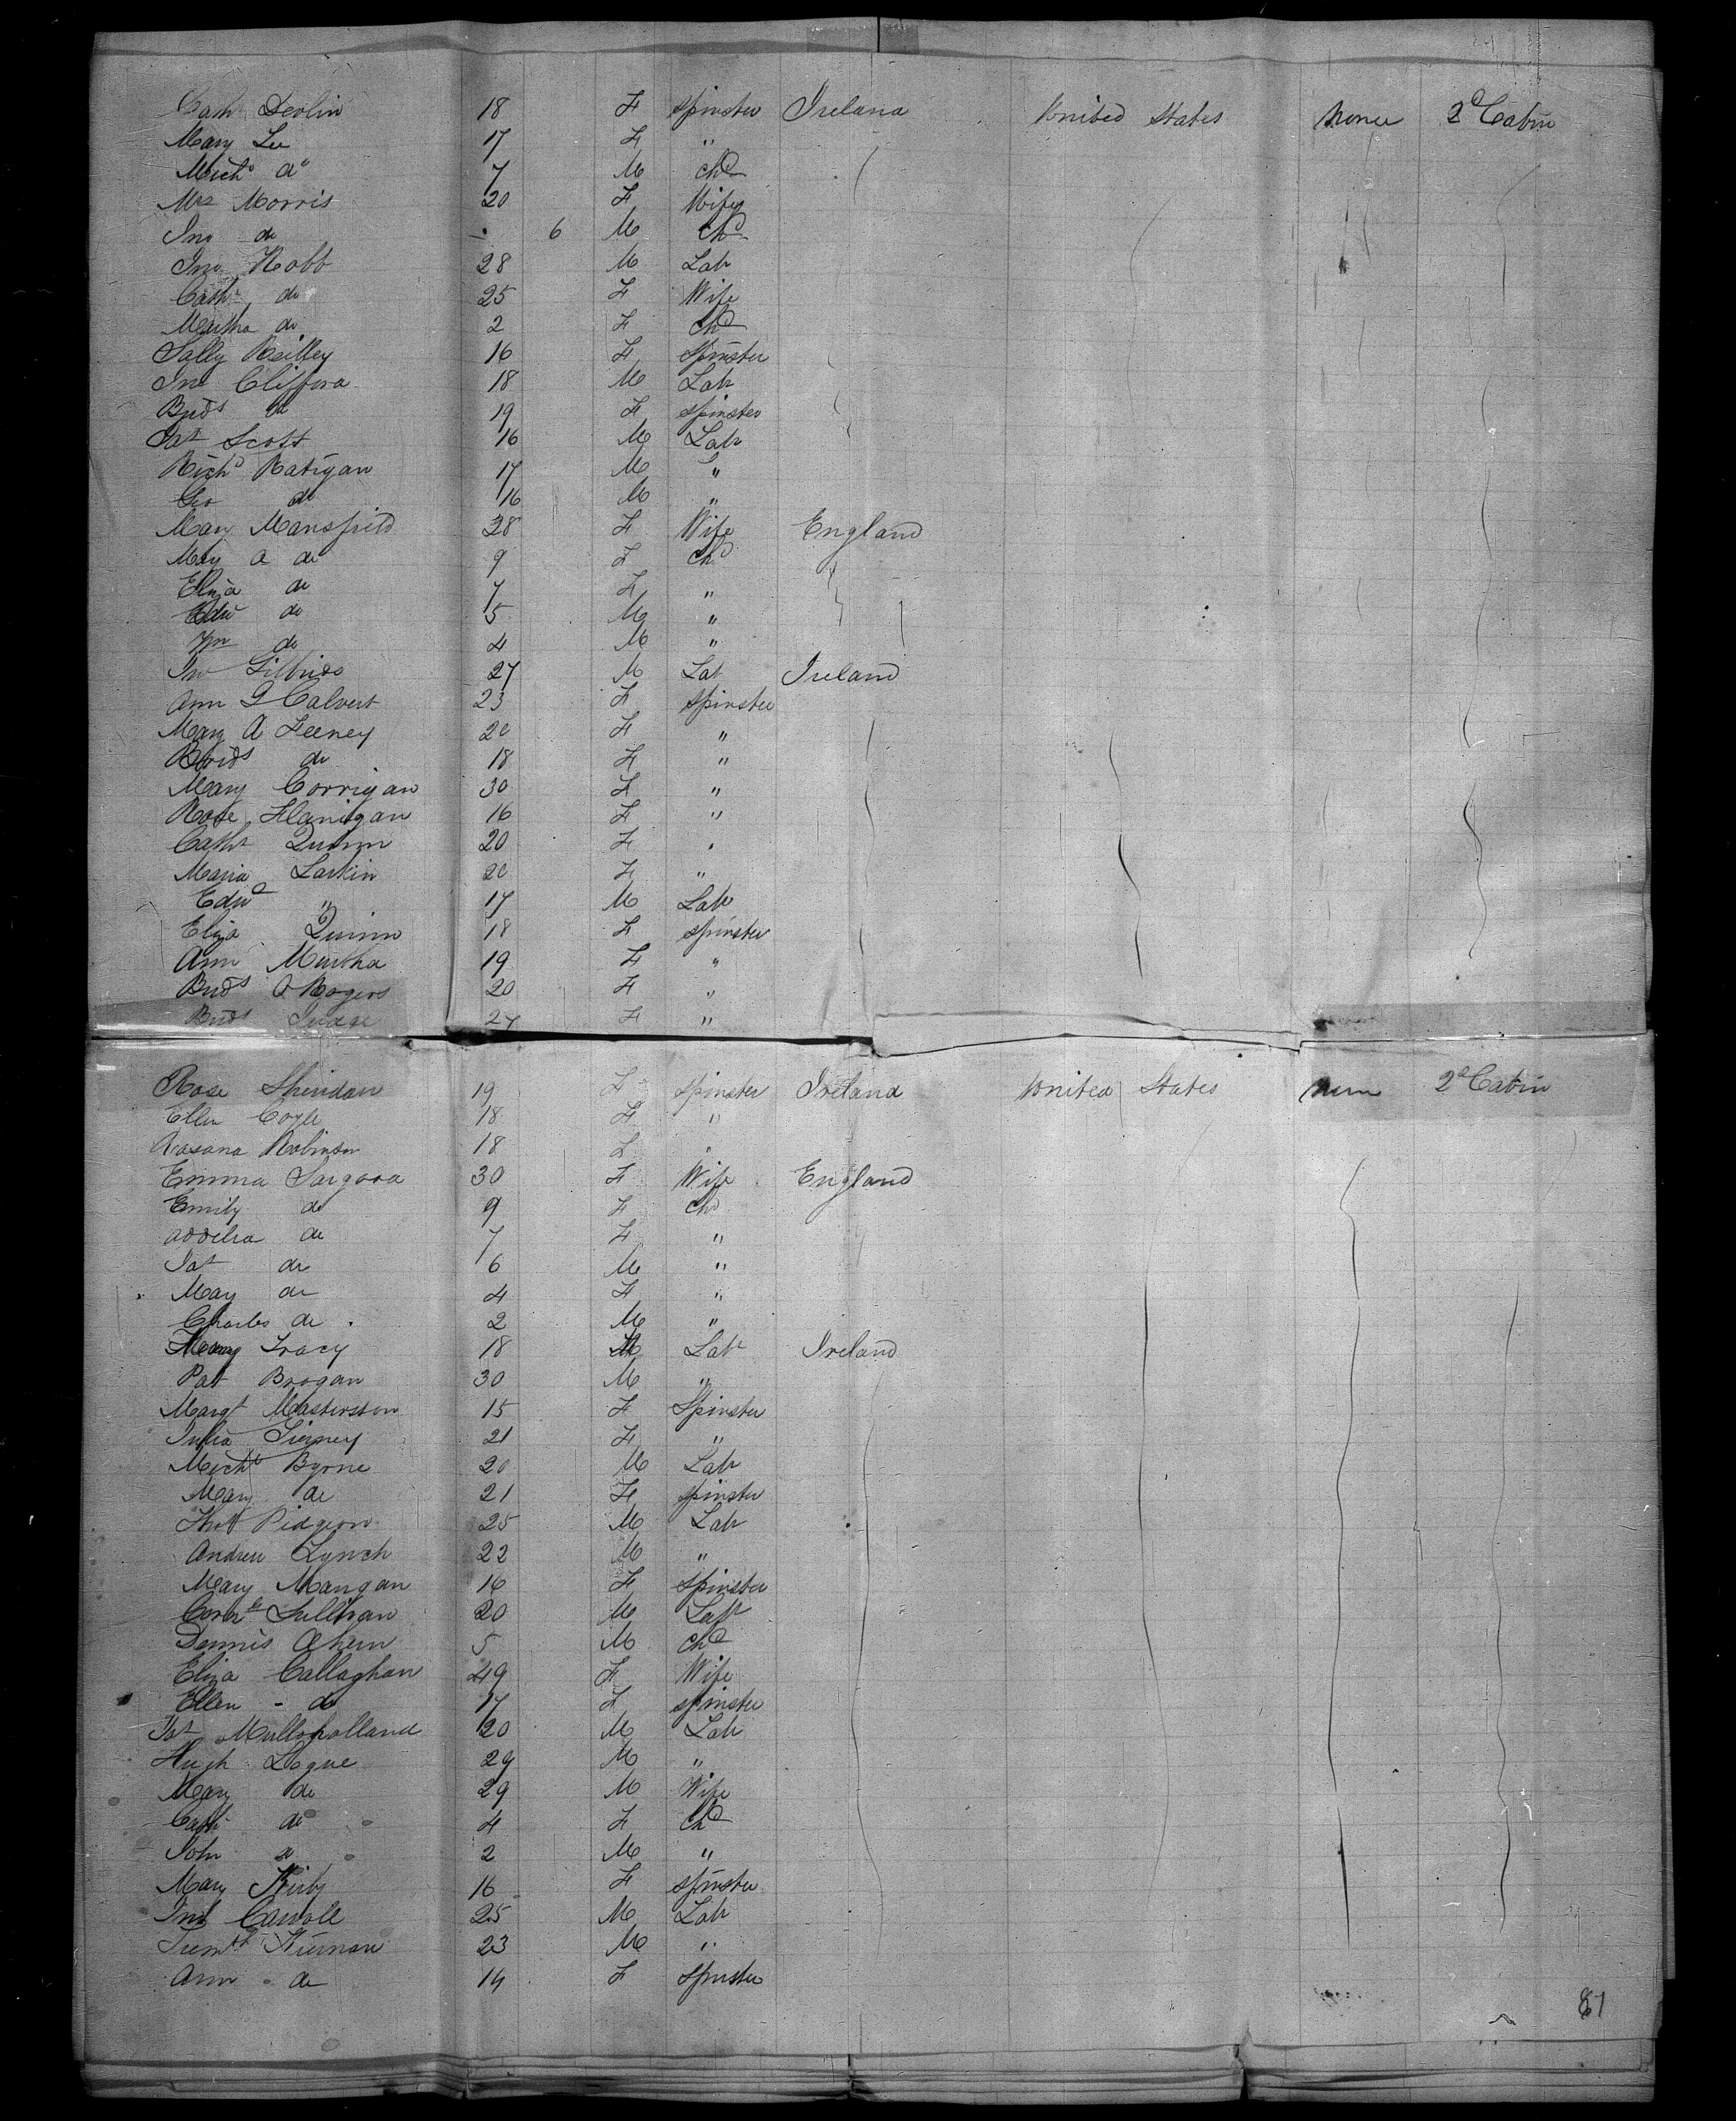 Cath Devlin 18 F Spinster Ireland United States None 2d Cabin
Mary Lee 17 F "
Mich do 7 M chd
Mrs Morris 20 F Wife
Jno do 6 M chd
Jno Robb 28 M Lab
Cath do 25 F Wife
Martha do 2 F Chd
Sally Reilley 16 F Spinster
Jno Clifford 18 M Lab
Bridt do 19 F spinster
Pat Scott 16 M Lab
Richd Ratigan 17 M "
Geo do 16 M "
Mary Mansfield 38 F Wife England
May A do 9 F Chd
Eliza do 7 F "
Edw do 5 M "
Wm do 4 M "
Jno 27 M Lab Ireland
Ann G Calvert 23 F Spinster
Mary A Feeney 20 F "
Bridt do 18 F "
Mary Corrigan 30 F "
Rose Flanigan 16 F "
Cath Quinn 20 F "
Maria Larkin 20 F "
Edwd " 17 M Lab
Eliza Quinn 18 F spinster
Ann Murtha 19 F "
Bridt Rogers 20 F "
Bridt Judge 27 F "
Rose Sheridan 19 F Spinster Ireland United States None 2d Cabin
Ellen Coyle 18 F "
Rosana Robinson 18 F "
Emma Sargood 30 F Wife England
Emily do 9 F Chd
Addelia do 7 F "
Pat do 6 M "
May do 4 F "
Charles do 2 M "
Tracy 18 M Lab Ireland
Pat Brogan 30 M "
Margt Masterson 15 F Spinster
Julia Tierney 21 F "
Michl Byrne 20 M Lab
Mary do 21 F spinster
Thos Pidgeon 25 M Lab
Andrew Lynch 22 M "
Mary Mangan 16 F Spinster
Corns Sullivan 20 M Lab
Dennis Ahern 5 M Chd
Eliza Callaghan 49 F Wife
Ellen - do 17 F spinster
Pat Mullholland 20 M Lab
Hugh Logue 29 M "
Mary do 29 M Wife
Cath do 4 F Chd
John do 2 M "
Mary Kirby 16 F spinster
Jno Carroll 25 M Lab
Kiernan 23 M "
Ann do 14 F Spinster
81